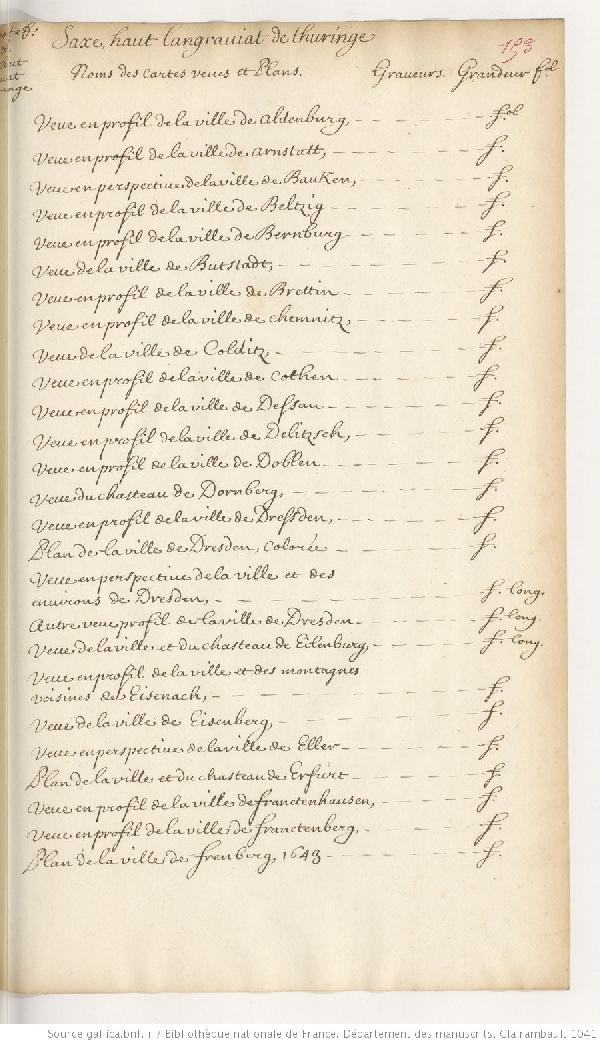 Saxe, haut langraviat de thuringe
193
Noms des cartes veues et Plans. Graveurs. Grandeur fol
Veue en profil de la ville de aldenburg, fol
Veue en profil de la ville de arnstatt, f.
Veue en perspective de la ville de Bauken, f.
Veue en profil de la ville de Beltzig f.
Veue en profil de la ville de Bernburg f.
Veue de la ville de Butstadt, f.
Veue en profil de la ville de Brettin f.
Veue en profil de la ville de chemnitz, f.
Veue de la ville de Colditz, f.
Veue en profil de la ville de Cothen f.
Veue en profil de la ville de Dessau f.
Veue en profil de la ville de Delitzsch, f.
Veue en profil de la ville de Doblen f.
Veue du chasteau de Dornberg, f.
Veue en profil de la ville de Dressden, f.
Plan de la ville de Dresden, colorée f.
Veue en perspective de la ville et des
environs de Dresden, f. long.
Autre veue profil de la ville de Dresden f. long.
Veue de la ville et du chasteau de Eilenburg, f. long.
Veue en profil de la ville et des montagnes
voisines de Eisenach, f.
Veue de la ville de Eisenberg, f.
Veue en perspective de la ville de Eller f.
Plan de la ville et du chasteau de Erfurt f.
Veue en profil de la ville de franckenhausen, f.
Veue en profil de la ville de franckenberg, f.
Plan de la ville de frenberg, 1643 f.
Source gallica.bnf.fr / Bibliothèque nationale de France. Département des manuscrits. Clairambault 1041